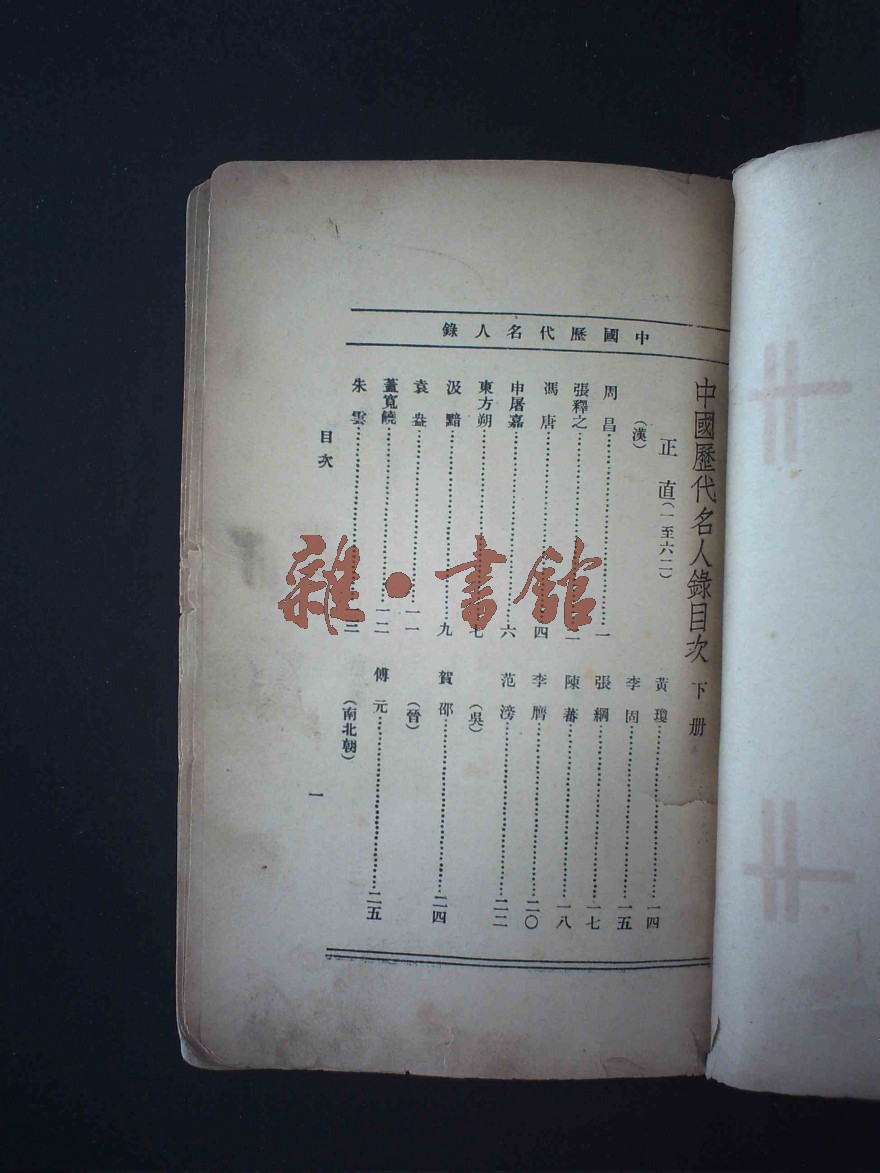 中國歷代名人錄
中國歷代名人錄目次 下册
正直(一至六二)
(漢)
周昌……一
張釋之……二
馮唐……四
申屠嘉……六
東方朔……七
汲黯……九
袁盎……一一
蓋寬饒……一二
朱雲……一三
黃瓊……一四
李固……一五
張綱……一七
陳蕃……一八
李膺……二〇
范滂……二二
(吳)
賀邵……二四
(晉)
傅元……二五
(南北朝)
目次
一
雜·書館